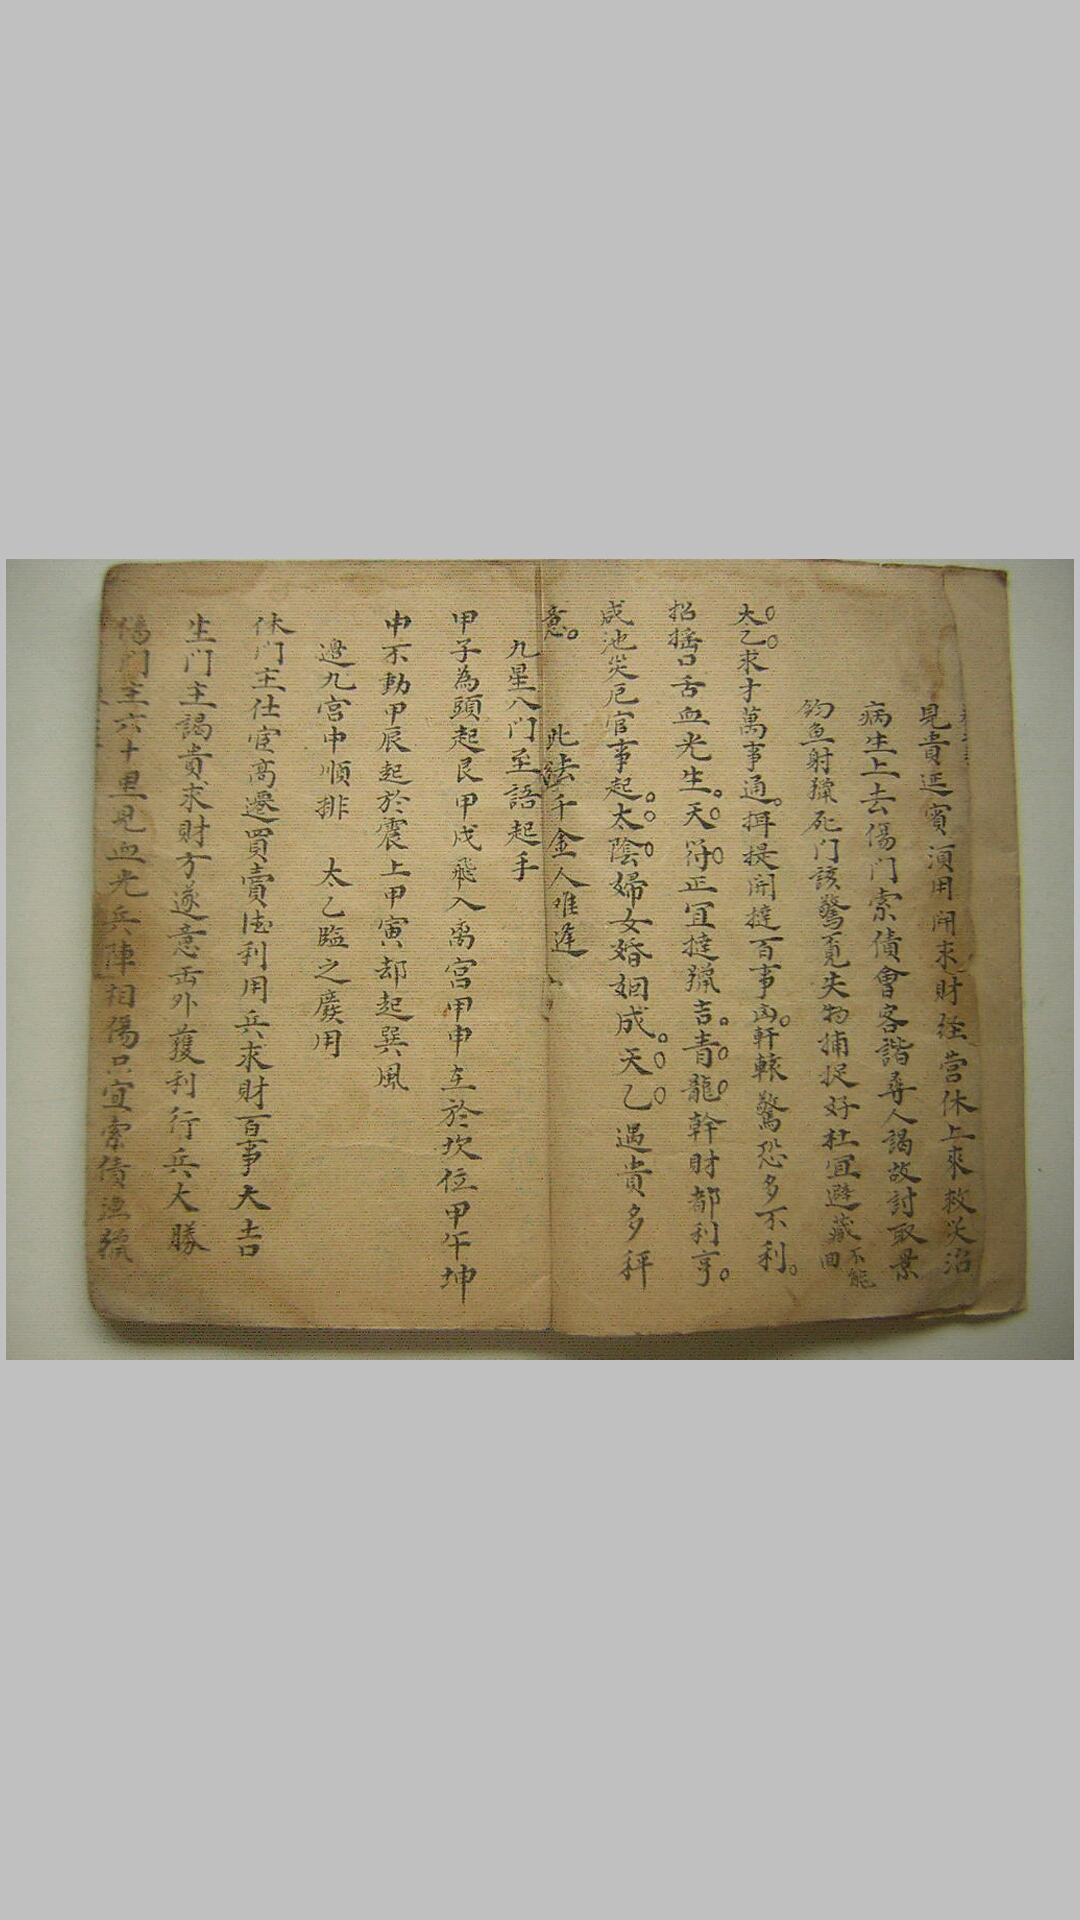 見貴延賓須用開求財經營休上來救災治
病生上去傷門索債會客諧尋人謁故討取景
釣魚射獵死門該驚覓失物捕捉好杜宜避藏 不能回
太乙求才萬事通。 提開撻百事凶。軒轅驚恐多不利。
招搖口舌血光生。天符正宜撻獵吉。青龍幹財都利亨。
咸池災厄官事起。太陰婦女婚姻成。天乙遇貴多秤
意。 此法千金人唯逢
九星八门至語起手
甲子為頭起艮甲戌飛入离宫甲申立於坎位甲午坤
申不動甲辰起於震上甲寅却起巽風
邊九宮中順排 太乙臨之廢用
休门主仕宦高遷買賣 利用兵求財百事大吉
生门主謁貴求財方遂意 外獲利行兵大勝
傷门主六十里見血光兵陣相傷只宜索債漁獵